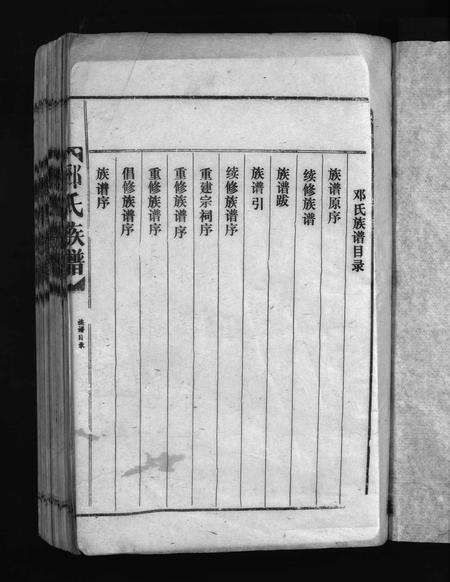 邓氏族谱目录
族谱原序
续修族谱
族谱跋
族谱引
续修族谱序
重建宗祠序
重修族谱序
重修族谱序
倡修族谱序
族谱序
邓氏族谱
族谱目录